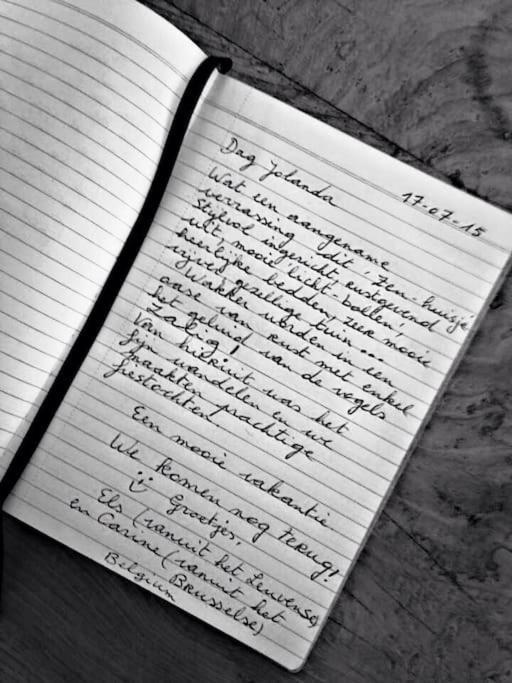 17-07-15
Dag Yolanda
Wat een aangename
verrassing dit 'zen-huisje'
stijlvol ingericht, rustgevend
wit, mooie licht-bollen,
heerlijke bedden, zeer mooie
vrij gezellige tuin...
Wakker worden in een
oase van rust met enkel
het geluid van de vogels
Zalig!
Van hieruit was het
fijn wandelen en we
maakten prachtige
fietstochten.
Een mooie vakantie
We komen nog terug!
Groetjes.
Els (vanuit het Leuvense)
en Carine (vanuit het
Brusselse)
Belgium